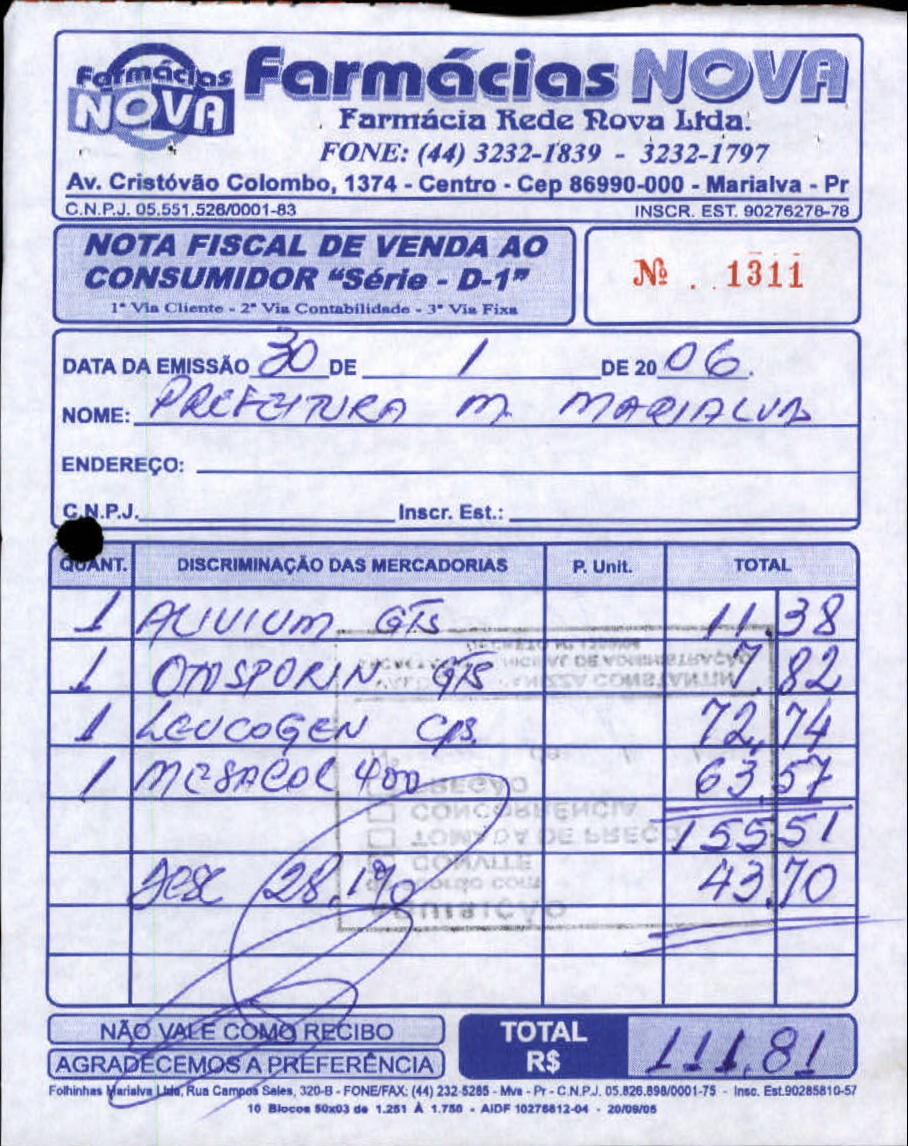 Farmácias NOVA
Farmácias NOVA
Farmácia Rede Nova Ltda.
FONE: (44) 3232-1839 - 3232-1797
Av. Cristóvão Colombo, 1374 - Centro - Cep 86990-000 - Marialva - Pr
C.N.P.J. 05.551.526/0001-83 INSCR. EST. 90276278-78
NOTA FISCAL DE VENDA AO
CONSUMIDOR "Série - D-1"
1ª Via Cliente - 2ª Via Contabilidade - 3ª Via Fixa
Nº . 1311
DATA DA EMISSÃO 30 DE 1 DE 20 06.
NOME: PREFEITURA M. MARIALVA
ENDEREÇO:
C.N.P.J. Inscr. Est.:
QUANT. DISCRIMINAÇÃO DAS MERCADORIAS P. Unit. TOTAL
1 ALIVIUM GTS 11,38
1 OTOSPORIN GTS 7,82
1 LEUCOGEN CPS 72,74
1 MESACOL 400 63,57
155,51
DESC 28,1% 43,70
AQUISIÇÃO
de acordo com
CONVITE
TOMADA DE PREÇO
CONCORRÊNCIA
PREGÃO
NÃO VALE COMO RECIBO
AGRADECEMOS A PREFERÊNCIA
TOTAL
R$ 111,81
Folhinhas Marialva Ltda, Rua Campos Sales, 320-B - FONE/FAX: (44) 232-5285 - Mva - Pr - C.N.P.J. 05.826.898/0001-75 - Insc. Est.90285810-57
10 Blocos 50x03 de 1.251 À 1.750 - AIDF 10276812-04 - 20/09/05